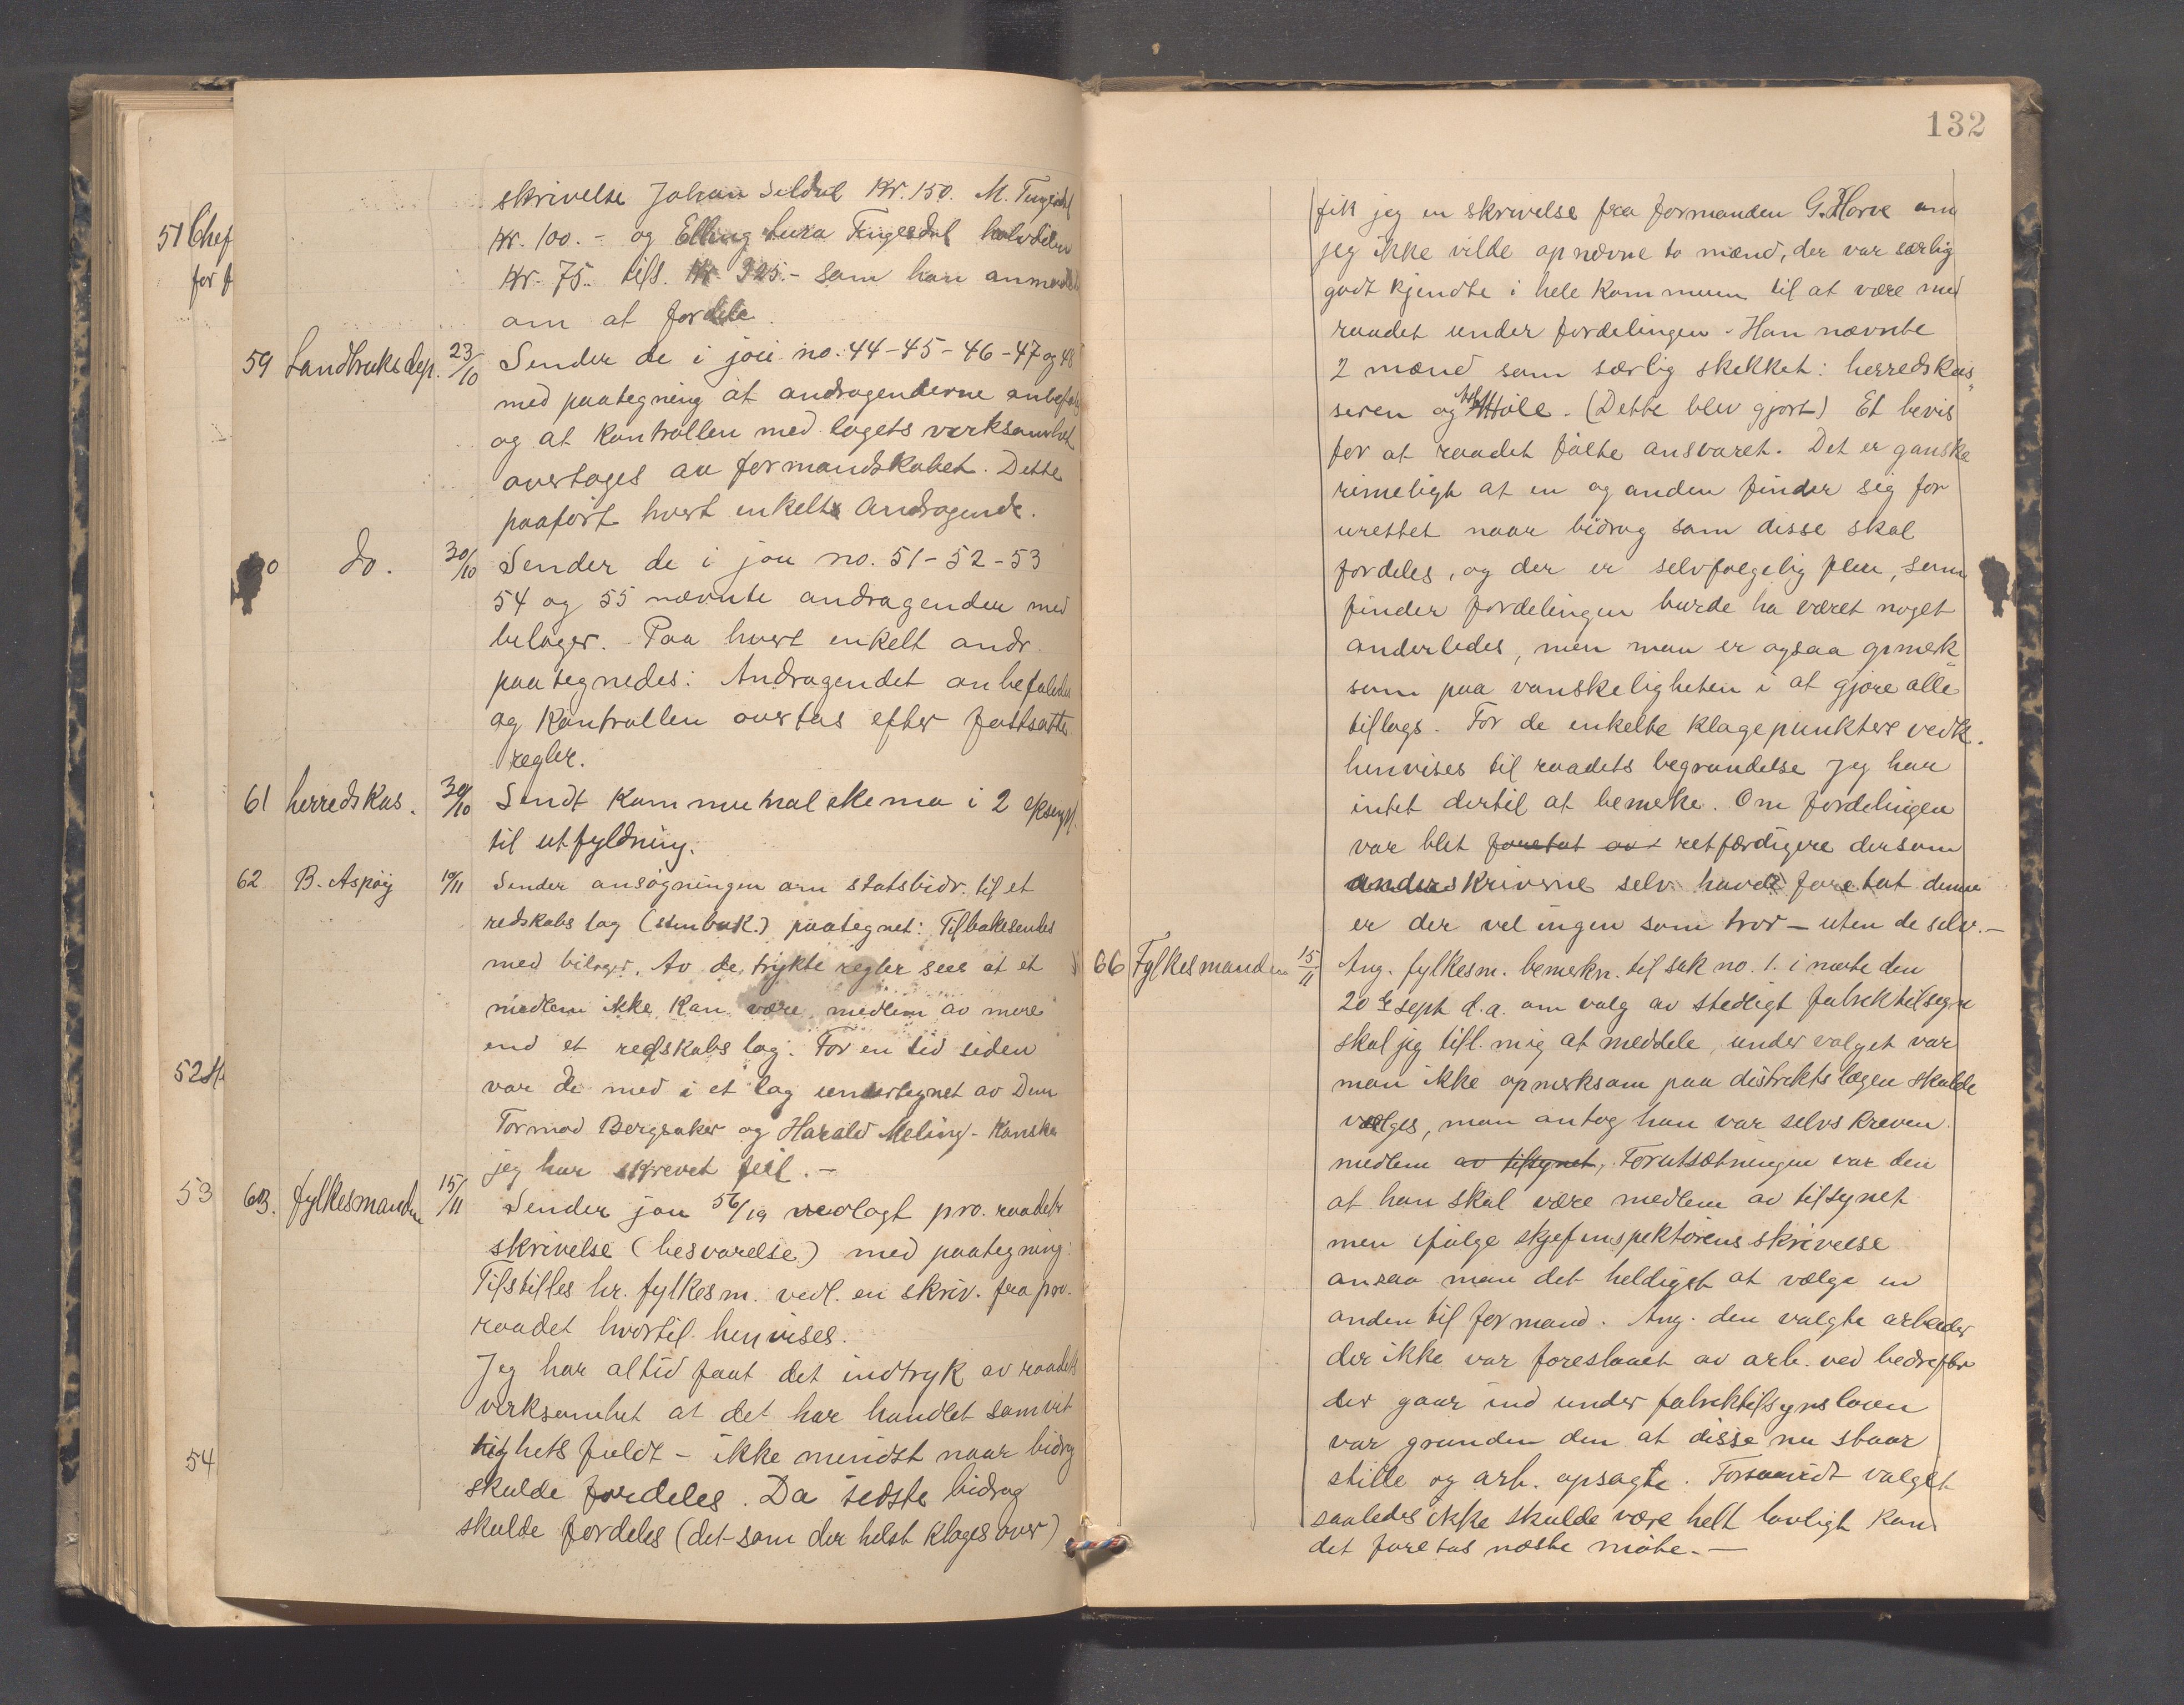 51 Chef
for f
52
53
54
skrivelse Johan Seldal Kr. 150. M. Tengesdal
Kr. 100.- og Elling Lura Tengesdal halvdelen
Kr. 75.. tils. Kr 325.- som han anmodet
om at fordele.
59 Landbruksdep. 23/10 Sender de i jou. no. 44-45-46-47 og 48
med paategning at andragenderne anbefales
og at kontrollen med lagets verksomhet
overtages av formandskabet. Dette
paaført hvert enkelte andragende.
60 do. 30/10 Sender de i jou no. 51-52-53
54 og 55 nævnte andragender med
bilager. Paa hvert enkelt andr.
paategnedes: Andragendet anbefales
og Kontrollen overtas efter fastsatte
regler.
61 herredskas. 30/10 Sendt Kommunalskema i 2 eksempl.
til utfyldning.
62 B. Aspøy 10/11 Sender ansøgningen om statsbidr. til et
redskabslag (stenbuk.) paategnet: Tilbakesendes
med bilager. Av de trykte regler sees at et
medlem ikke kan være medlem av mere
end et redskabslag. For en tid siden
var De med i et lag undertegnet av Dem
Tormod Bergsaker og Harald Meling - Kanske
jeg har skrevet feil.-
63. fylkesmanden 15/11 Sender jou 56/19 vedlagt pro. raadets
skrivelse (besvarelse) med paategning:
Tilstilles hr. fylkesm. vedl. en skriv. fra pro.
raadet hvortil henvises.
Jeg har altid faat det indtryk av raadets
verksomhet at det har handlet samvit
tighetsfuldt - ikke mindst naar bidrag
skulde fordeles. Da sidste bidrag
skulde fordeles (det som der helst klages over)
132
fik jeg en skrivelse fra formanden G. Horve om
jeg ikke vilde opnævne to mænd, der var særlig
godt kjendte i hele kommunen til at være med
raadet under fordelingen. Han nævnte
2 mænd som særlig skikket: herredskas„
seren og Høle. (Dette blev gjort) Et bevis
for at raadet følte ansvaret. Det er ganske
rimeligt at en og anden finder sig for
urettet naar bidrag som disse skal
fordeles, og der er selvfølgelig flere, som
finder fordelingen burde ha været noget
anderledes, men man er ogsaa opmerk„
som paa vanskeligheten i at gjøre alle
tillags. For de enkelte klagepunkter vedk.
henvises til raadets begrundelse Jeg har
intet dertil at bemerke. Om fordelingen
var blit foretat av retfærdigere dersom
underskriverne selv havde foretat denne
er der vel ingen som tror - uten de selv.-
66 Fylkesmanden 15/11 Ang. fylkesm. bemerkn. til sak no. 1. i møte den
20de sept d.a. om valg av stedligt fabriktilsyn
skal jeg till. mig at meddele, under valget var
man ikke opmerksom paa distriktslægen skulde
vælges, man antog han var selvskreven
medlem av tilsynet, Forutsætningen var den
at han skal være medlem av tilsynet
men ifølge skjefinspektørens skrivelse
ansaa man det heldigst at vælge en
anden til formand. Ang. den valgte arbeider
der ikke var foreslaaet av arb. ved bedrifter
der gaar ind under fabriktilsynsloven
var grunden den at disse nu staar
stille og arb. opsagte. Forsaavidt valget
saaledes ikke skulde være helt lovligt kan
det foretas næste møte.-